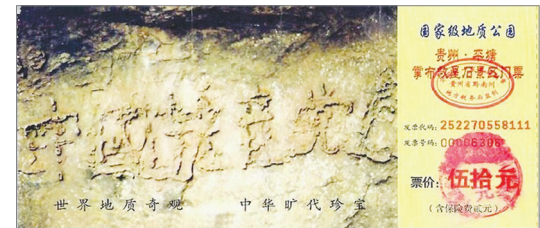 中国共产党
世界地质奇观 中华旷代珍宝
国家级地质公园
贵州·平塘
掌布风景区门票
发票代码: 252270558111
发票号码: 00006306
票价: 伍拾元
(含保险费贰元)